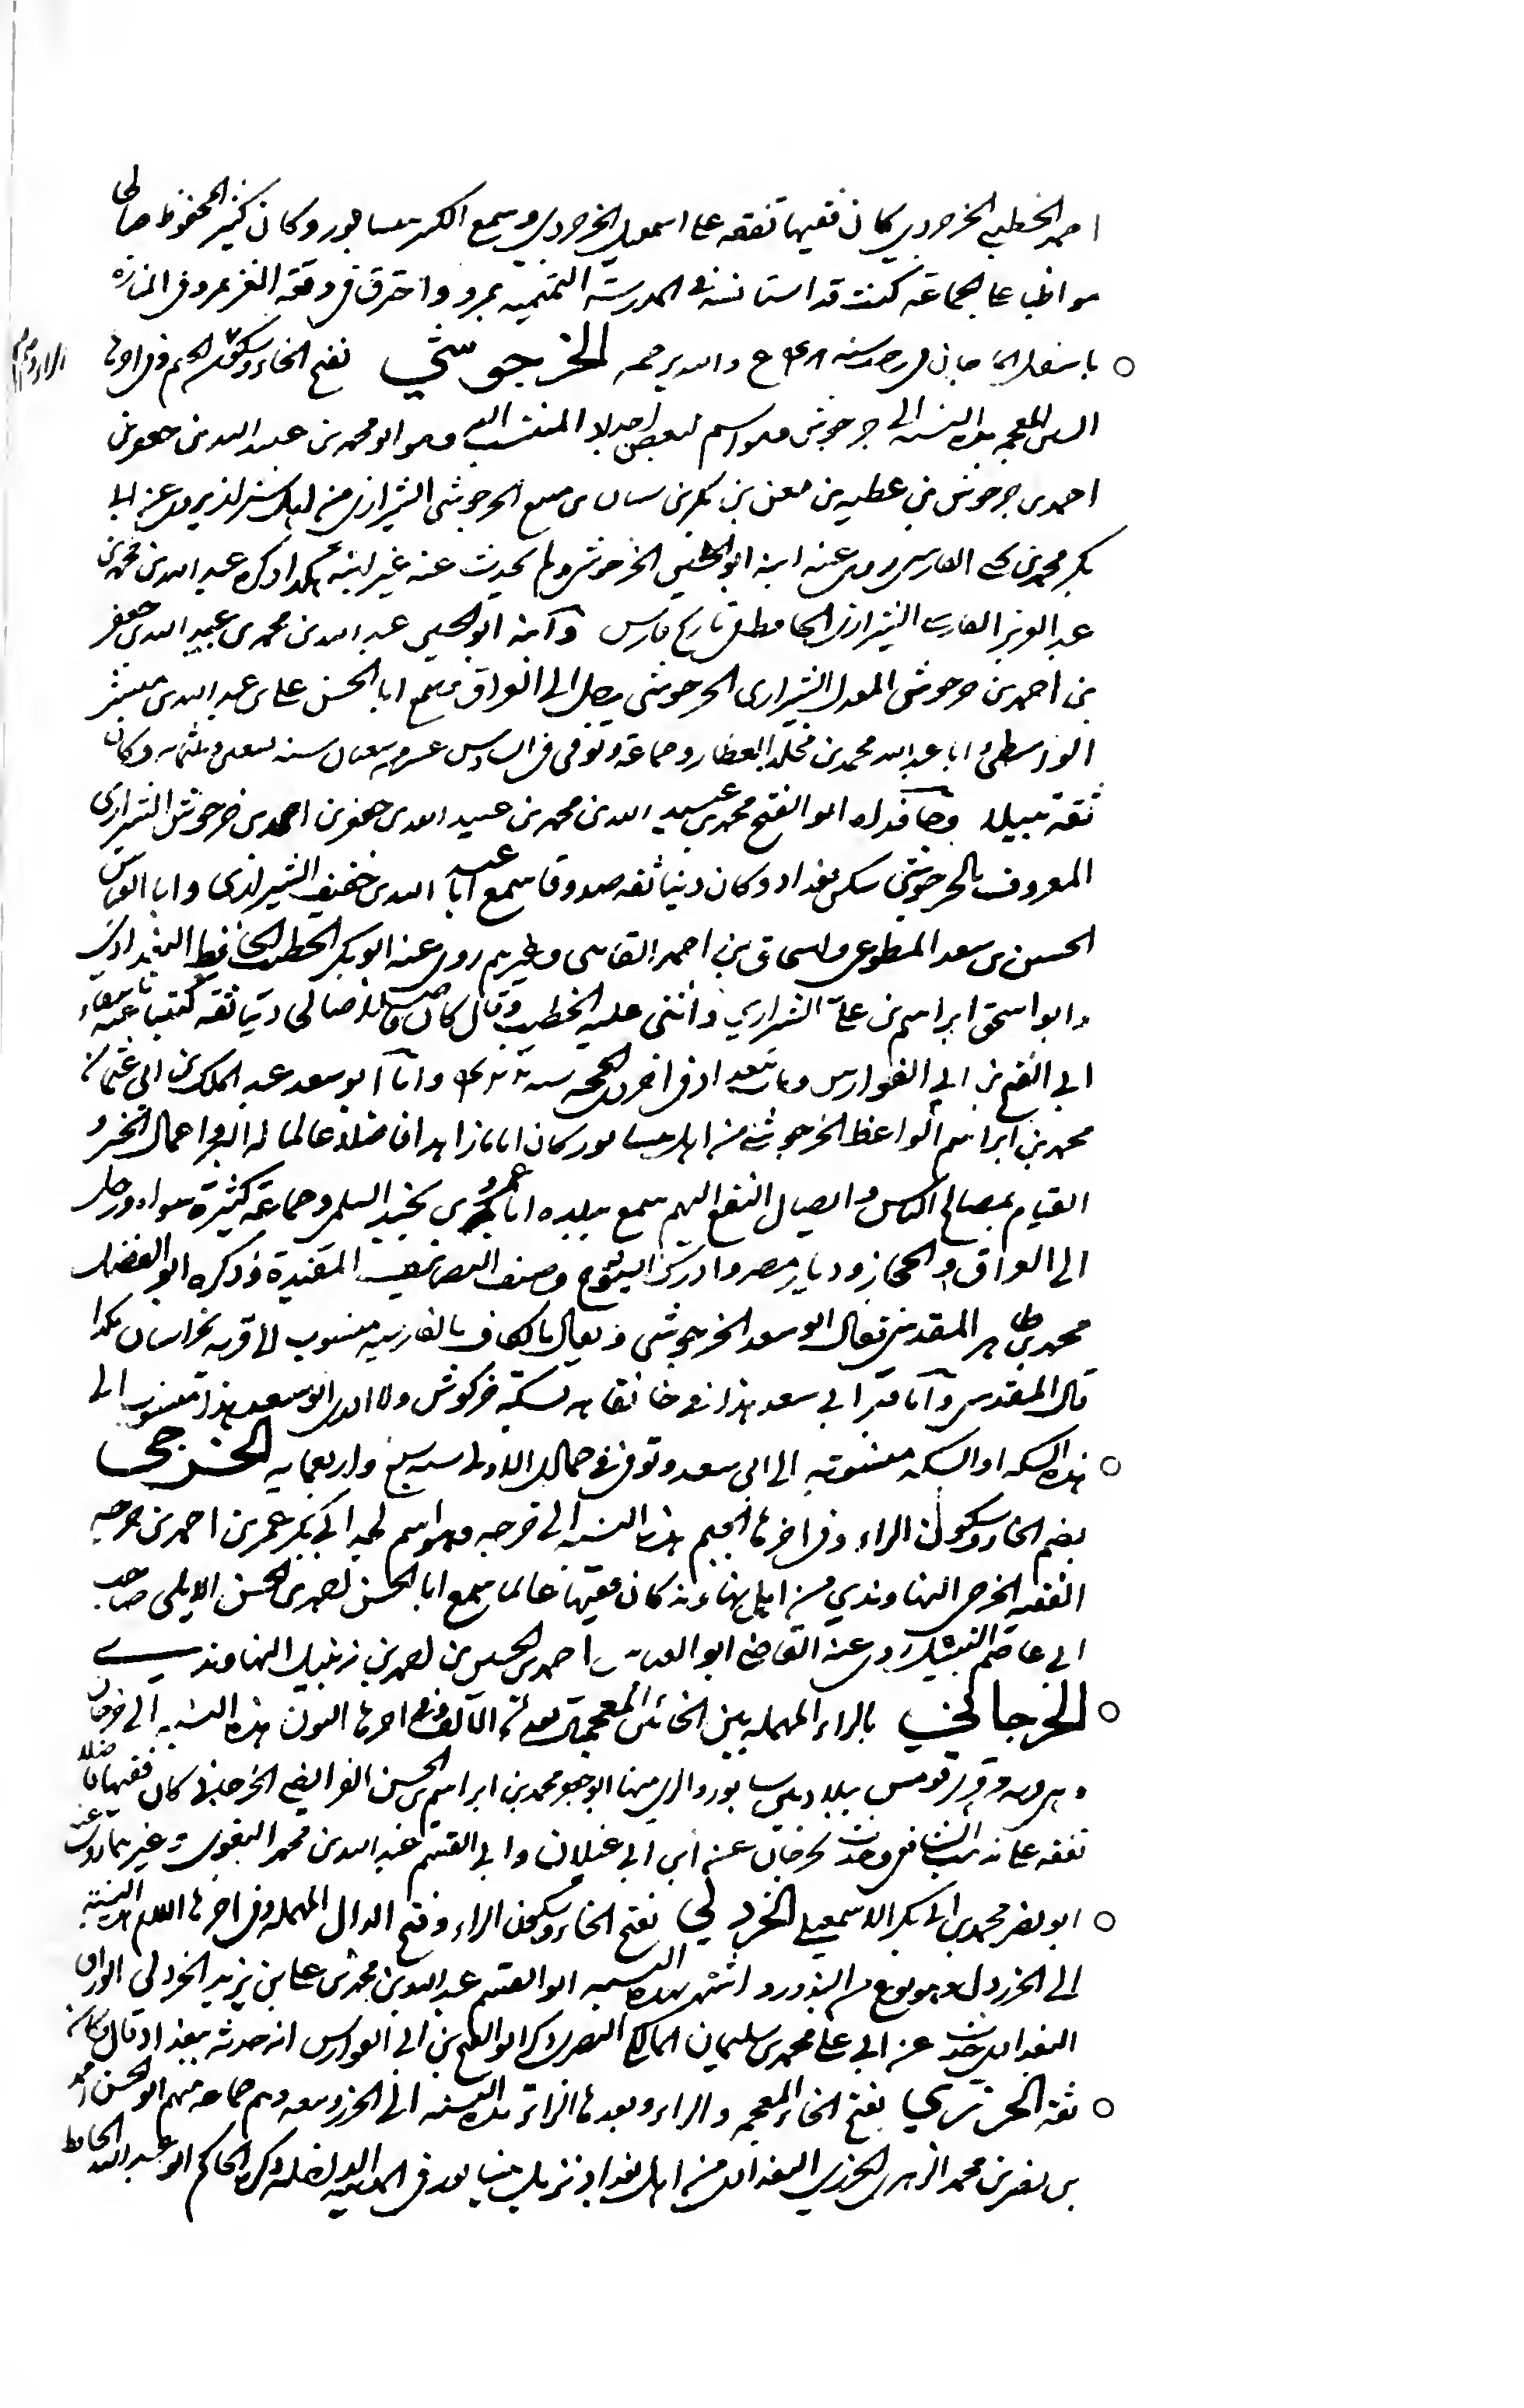 احمد الخطيب الخرجردي كان فقيها تفقه على اسمعيل الخرجردي وسمع الكثير بنيسابور وكان كثير المحفوظ صالحا
مواظبا على الجماعة كنت قد استانست في المدرسة التميمية بمرو واحترق في وقعة الغز بمرو في المنارة
باسفل الماجان في رجب سنة ٥٤٨ والله يرحمه الخرجوشي بفتح الخاء وسكون الجيم وفي اخرها
الشين المعجمة هذه النسبة الى خرجوش وهو اسم لبعض اجداد المنتسب اليه وهو ابو محمد بن عبيد الله بن جعفر بن
احمد بن خرجوش بن عطية بن معن بن بكر بن الخرجوشي الشيرازي من اهل شيراز يروي عن ابي
بكر محمد بن الفارسي روى عنه ابنه ابو الحسين الخرجوشي ولم يحدث عنه غير ابنه هكذا ذكره عبد الله بن محمد بن
عبد العزيز الفارسي الشيرازي الحافظ في تاريخ فارس وابنه ابو الحسين عبد الله بن محمد بن عبيد الله بن جعفر
بن احمد بن خرجوش المعدل الشيرازي الخرجوشي رحل الى العراق وسمع ابا الحسن علي بن عبد الله بن مبشر
الواسطي وابا عبد الله محمد بن مخلد العطار وجماعة وتوفي في السادس عشر من شعبان سنة وثلثمائة وكان
ثقة نبيلا وحافده ابو الفتح محمد بن عبيد الله بن محمد بن عبيد الله بن جعفر بن احمد بن خرجوش الشيرازي
المعروف بالخرجوشي سكن بغداد وكان دينا ثقة صدوقا سمع ابا عبد الله بن خفيف الشيرازي وابا العباس
الحسين بن سعد المطوعي واسحاق بن احمد القاسي وغيرهم روى عنه ابو بكر الخطيب الحافظ البغدادي
وابو اسحق ابراهيم بن علي الشيرازي واثنى عليه الخطيب وقال كان فاضلا صالحا دينا ثقة كتبنا عنه بانتقاء
ابي الفتح بن ابي الفوارس ومات ببغداد في اخر ذي الحجة سنة واما ابو سعد عبد الملك بن ابي عثمان
محمد بن ابراهيم الواعظ الخرجوشي من اهل نيسابور كان اماما زاهدا فاضلا عالما له البر واعمال الخير و
القيام بمصالح الناس وايصال النفع اليهم سمع ببلده ابا عمرو بن نجيد السلمي وجماعة كثيرة سواه ورحل
الى العراق والحجاز وديار مصر وادرك الشيوخ وصنف التصانيف المفيدة وذكره ابو الفضل
محمد بن طاهر المقدسي فقال ابو سعد الخرجوشي ويقال بالكاف بالفارسية منسوب الى قرية بخراسان هكذا
قال المقدسي واما قبر ابي سعد هذا في خانقاهه بسكة خركوش ولا ادري ابو سعد هذا منسوب الى
هذه السكة او السكة منسوبة الى ابي سعد وتوفي في جمادى الاولى سنة سبع واربعماية الخرجي
بضم الخاء وسكون الراء وفي اخرها الجيم هذه النسبة الى خرجه وهو اسم لجد ابي بكر عمر بن احمد بن خرجه
الفقيه الخرجي النهاوندي من اهل نهاوند كان فقيها عالما سمع ابا الحسن بصري الحسن الايلي صاحب
ابي عاصم النبيل روى عنه القاضي ابو العباس احمد بن الحسين بن احمد بن زنبيل النهاوندي
الخرخاني بالراء المهملة بين الخائين المعجمتين بعدها الالف وفي اخرها النون هذه النسبة الى خرخان
وهي قرية من قرى قومس ببلاد بين نيسابور والري منها ابو جعفر محمد بن ابراهيم بن الحسن الفرايضي الخرخاني كان فقيها فاضلا
تفقه على مذهب الشافعي وحدث بخرخان عن ابن ابي غيلان وابي القسم عبد الله بن محمد البغوي وغيرهما روى عنه
ابو نصر محمد بن ابي بكر الاسمعيلي الخردلي بفتح الخاء وسكون الراء وفتح الدال المهملة وفي اخرها اللام هذه النسبة
الى الخردل وهو نوع من البذور واشتهر بهذه النسبة ابو القسم عبد الله بن محمد بن علي بن يزيد الخردلي الوراق
البغدادي حدث عن ابي علي محمد بن سليمان المالكي البصري روى ابو الفتح بن ابي الفوارس انه حدثه ببغداد قال وكان
ثقة الخرزي بفتح الخاء المعجمة والراء وبعدها الزاي هذه النسبة الى الخرز وبيعه وهم جماعة منهم ابو الحسن احمد
بن نصر بن محمد الزهري الخرزي البغدادي من اهل بغداد نزيل نيسابور ذكره الحاكم ابو عبد الله الحافظ